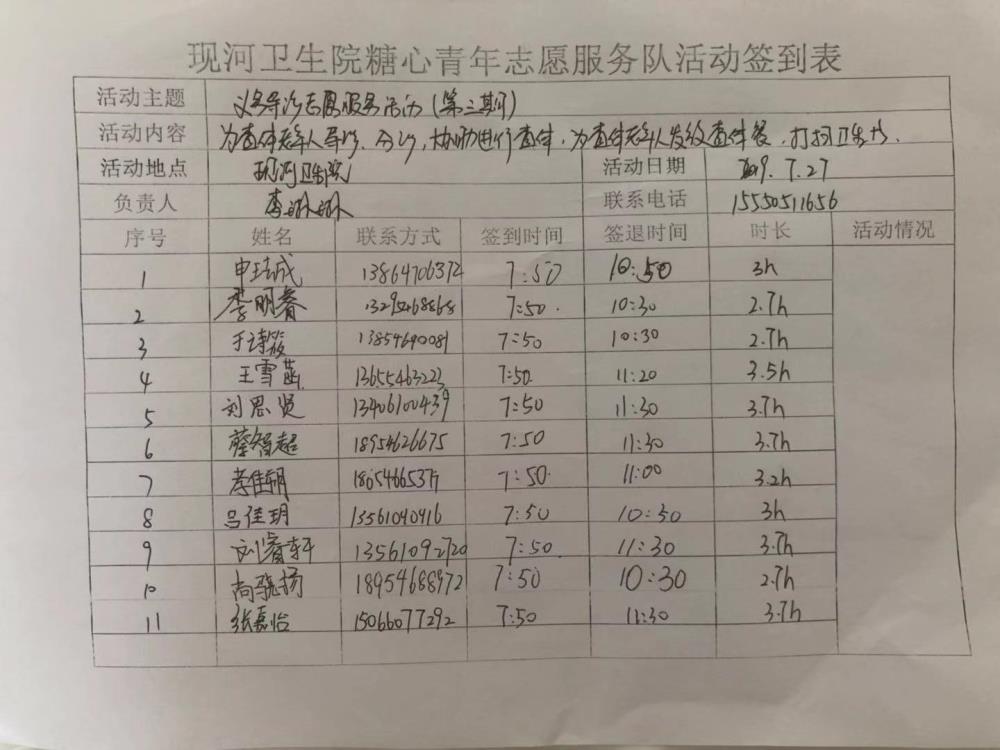 现河卫生院糖心青年志愿服务队活动签到表
活动主题 义务导诊志愿服务活动(第三期)
活动内容 为查体老年人导诊、分诊,协助进行查体,为查体老年人发放查体餐,打扫卫生.
活动地点 现河卫生院 活动日期 7.27
负责人 李琳琳 联系电话 15550511656
序号 姓名 联系方式 签到时间 签退时间 时长 活动情况
1 13864706372 7:50 10:50 3h
2 李明睿 13295468868 7:50. 10:30 2.7h
3 13854690081 7:50 10:30 2.7h
4 王雪菡 13655463223 7:50. 11:20 3.5h
5 刘思贤 13406100439 7:50 11:30 3.7h
6 蔡智超 18954626675 7:50 11:30 3.7h
7 7:50. 11:00 3.2h
8 吕佳玥 13561040416 7:50 10:50 3h
9 刘睿轩 13561092720 7:50. 11:30 3.7h
10 尚骁扬 18954688972 7:50 10:30 2.7h
11 张嘉怡 15066077292 7:50 11:30 3.7h